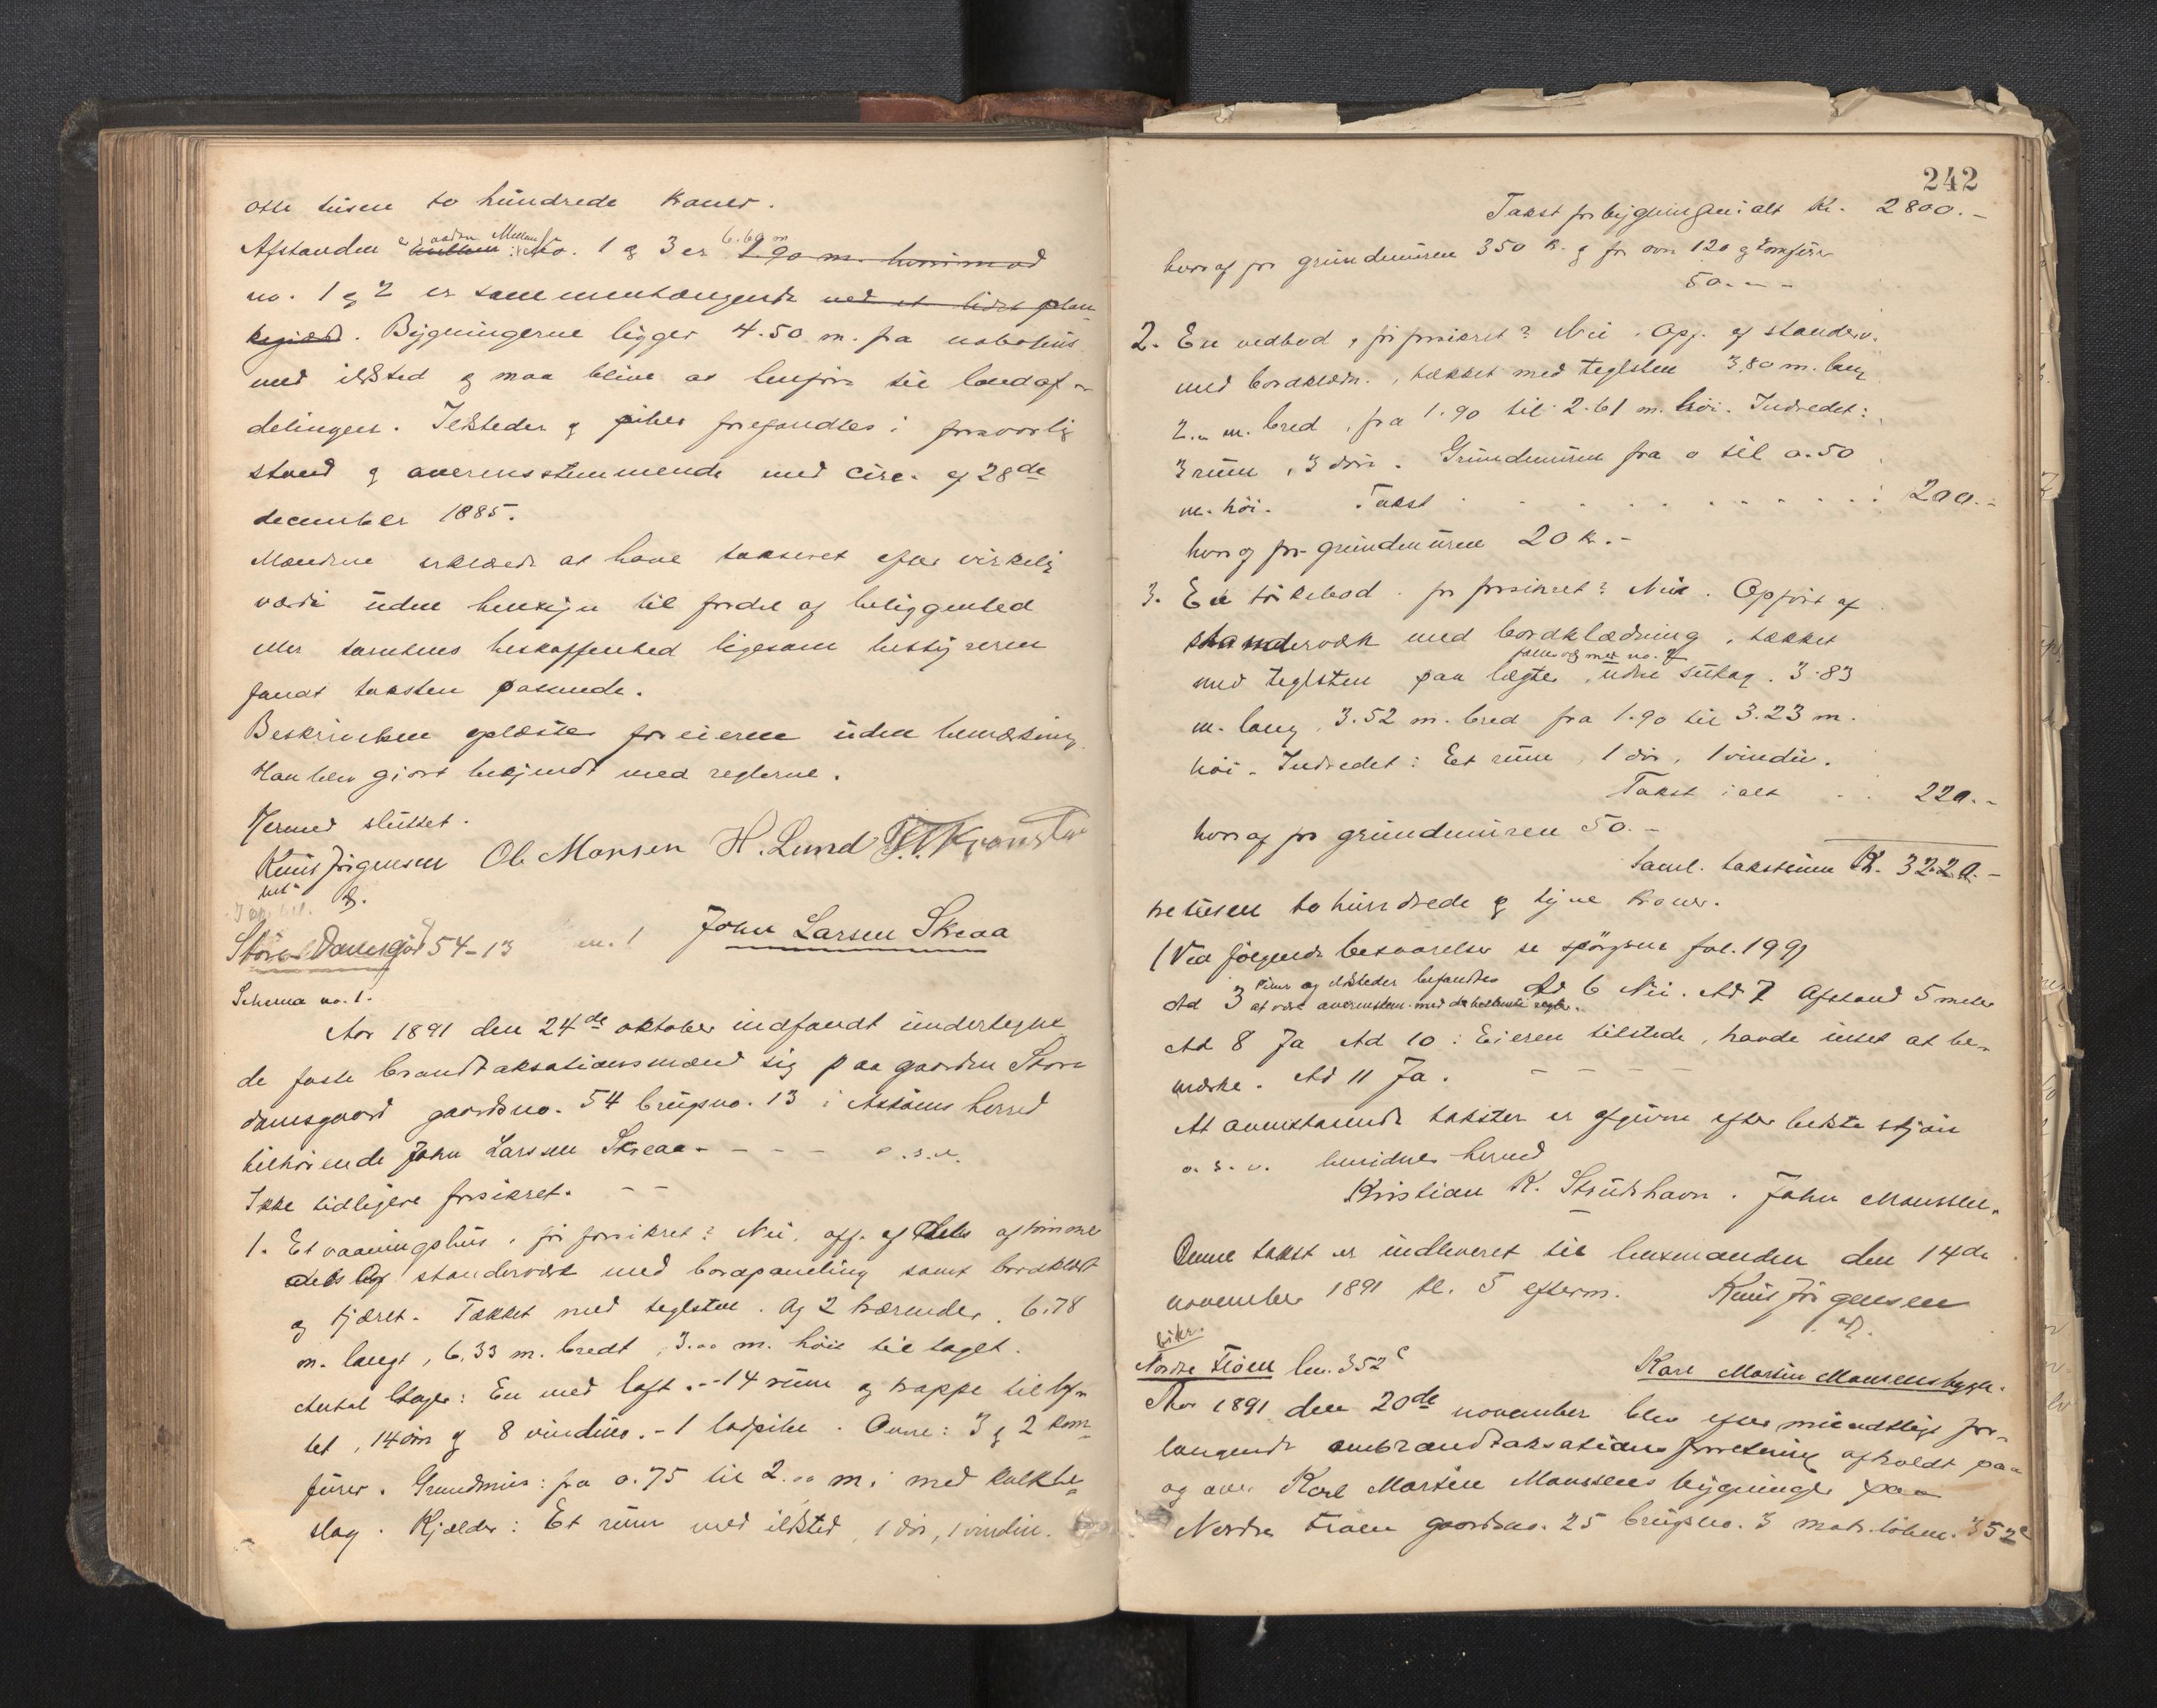 otte tusen to hundrede kroner.
Afstanden mellem no. 1 og 3 er 6.60 m 1.90 m. hvorimod
no. 1 og 2 er sammenhængende ved et lidet plan-
kegjærd. Bygningerne ligger 4.50 m. fra nabohus
med ildsted og maa blive at henføre til landaf-
delingen. Ildsteder og piber forefandtes i forsvarlig
stand og overensstemmende med circ. af 28de
december 1885.
Mændene erklærede at have takseret efter virkelig
værdi uden hensyn til fordel af beliggenhed
eller tomtens beskaffenhed ligesom bestyreren
fandt taksten passende.
Beskrivelsen oplæstes for eieren uden bemærkning.
Han blev gjort bekjendt med reglerne.
Hermed sluttet.
Knut Jørgensen Ole Monsen H. Lund
Store Damsgård 54-13 m. 1 John Larsen Skraa
Schema no. 1.
Aar 1891 den 24de oktober indfandt undertegne
de faste brandtaksationsmænd sig paa gaarden Store
damsgaard gaardsno. 54 brugsno. 13 i Askøens herred
tilhørende John Larssen Skraa - - - - o.s.v.
Ikke tidligere forsikret. - -
1. Et vaaningshus, før forsikret? Nei, opf. af dels af tømmer
dels af standerværk med bordpaneling samt bordklædt
og tjæret. Tækket med teglsten. Ag 2 værender. 6.78
m. langt, 6.33 m. bredt, 3.00 m. høit til taget.
Antal Etager: En med loft. - 14 rum og trappe til lof-
tet, 14 dør og 8 vinduer. - 1 ladpibe. Ovne: 3 og 2 kom-
fürer. Grundmur: fra 0.75 til 2.00 m. med kalkbe-
slag. Kjælder: Et rum med ildsted, 1 dør, 1 vindu.
242
Takst for bygningen ialt Kr. 2800.-
hvoraf for grundmuren 350 K. og for ovn 120 og komfürer
50.- - -
2. En vedbod, før forsikret? Nei. Opf. af standerv.
med bordklædn., tækket med teglsten 3.80 m. lang
2.- m. bred, fra 1.90 til 2.61 m. høi. Indredet:
3 rum, 3 døre. Grundmuren fra 0 til 0.50
m. høi. Takst . . . . . . . . . : 200.-
hvoraf for grundmuren 20 K.-
3. En torkebod. før forsikret? Nei. Opført af
standerværk med bordklædning, tækket
fælles væg med no. 2
med teglsten paa lægter, uden sutag. 3.83
m. lang, 3.52 m. bred fra 1.90 til 3.23 m.
høi. Indredet: Et rum, 1 dør, 1 vindu.
Takst ialt . . 220.-
hvoraf for grundmuren 50.-
Saml. takstsum K. 3220.-
tre tusen to hundrede og tyve kroner.
(Ved følgende besvarelser se spørgsm. fol. 199)
Ad 3 Piber og ildsteder befandtes at være overensstem. med de bestemte regler. Ad 6 Nei. Ad 7 Afstand 5 meter
Ad 8 Ja Ad 10: Eieren tilstede, havde intet at be-
mærke. Ad 11 Ja. - - - -
At ovenstaaende takster er afgivne efter bedste skjøn
o. s. v. bevidnes herved
Kristian K. Strudshavn. John Monssen.
Denne takst er indleveret til lensmanden den 14de
november 1891 kl. 5 efterm. Knut Jørgensen
Nordre Fløen lm. 352c Karl Martin Monsens bygn.
Aar 1891 den 20de november blev efter mundtligt for-
langende ombrandtaksationsforretning afholdt paa
og over Karl Martin Monssens bygninger paa
Nordre Fløen gaardsno. 25 brugsno. 3 matr. løbenr. 352c